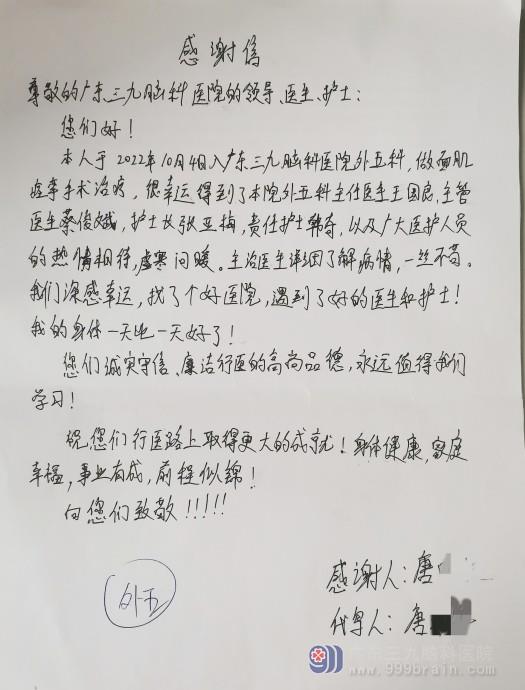 感谢信
尊敬的广东三九脑科医院的领导、医生、护士:
您们好!
本人于2022年10月4日入广东三九脑科医院外五科,做面肌
痉挛手术治疗,很幸运得到了本院外五科主任医生王国良,主管
医生蔡俊斌,护士长张亚梅,责任护士韩奇,以及广大医护人员
的热情相待,虚寒问暖。主治医生详细了解病情,一丝不苟。
我们深感幸运,找了个好医院,遇到了好的医生和护士!
我的身体一天比一天好了!
您们诚实守信、廉洁行医的高尚品德,永远值得我们
学习!
祝您们行医路上取得更大的成就!身体健康,家庭
幸福,事业有成,前程似锦!
向您们致敬!!!!!
感谢人:唐
外五
代笔人:唐
广东三九脑科医院
www.999brain.com